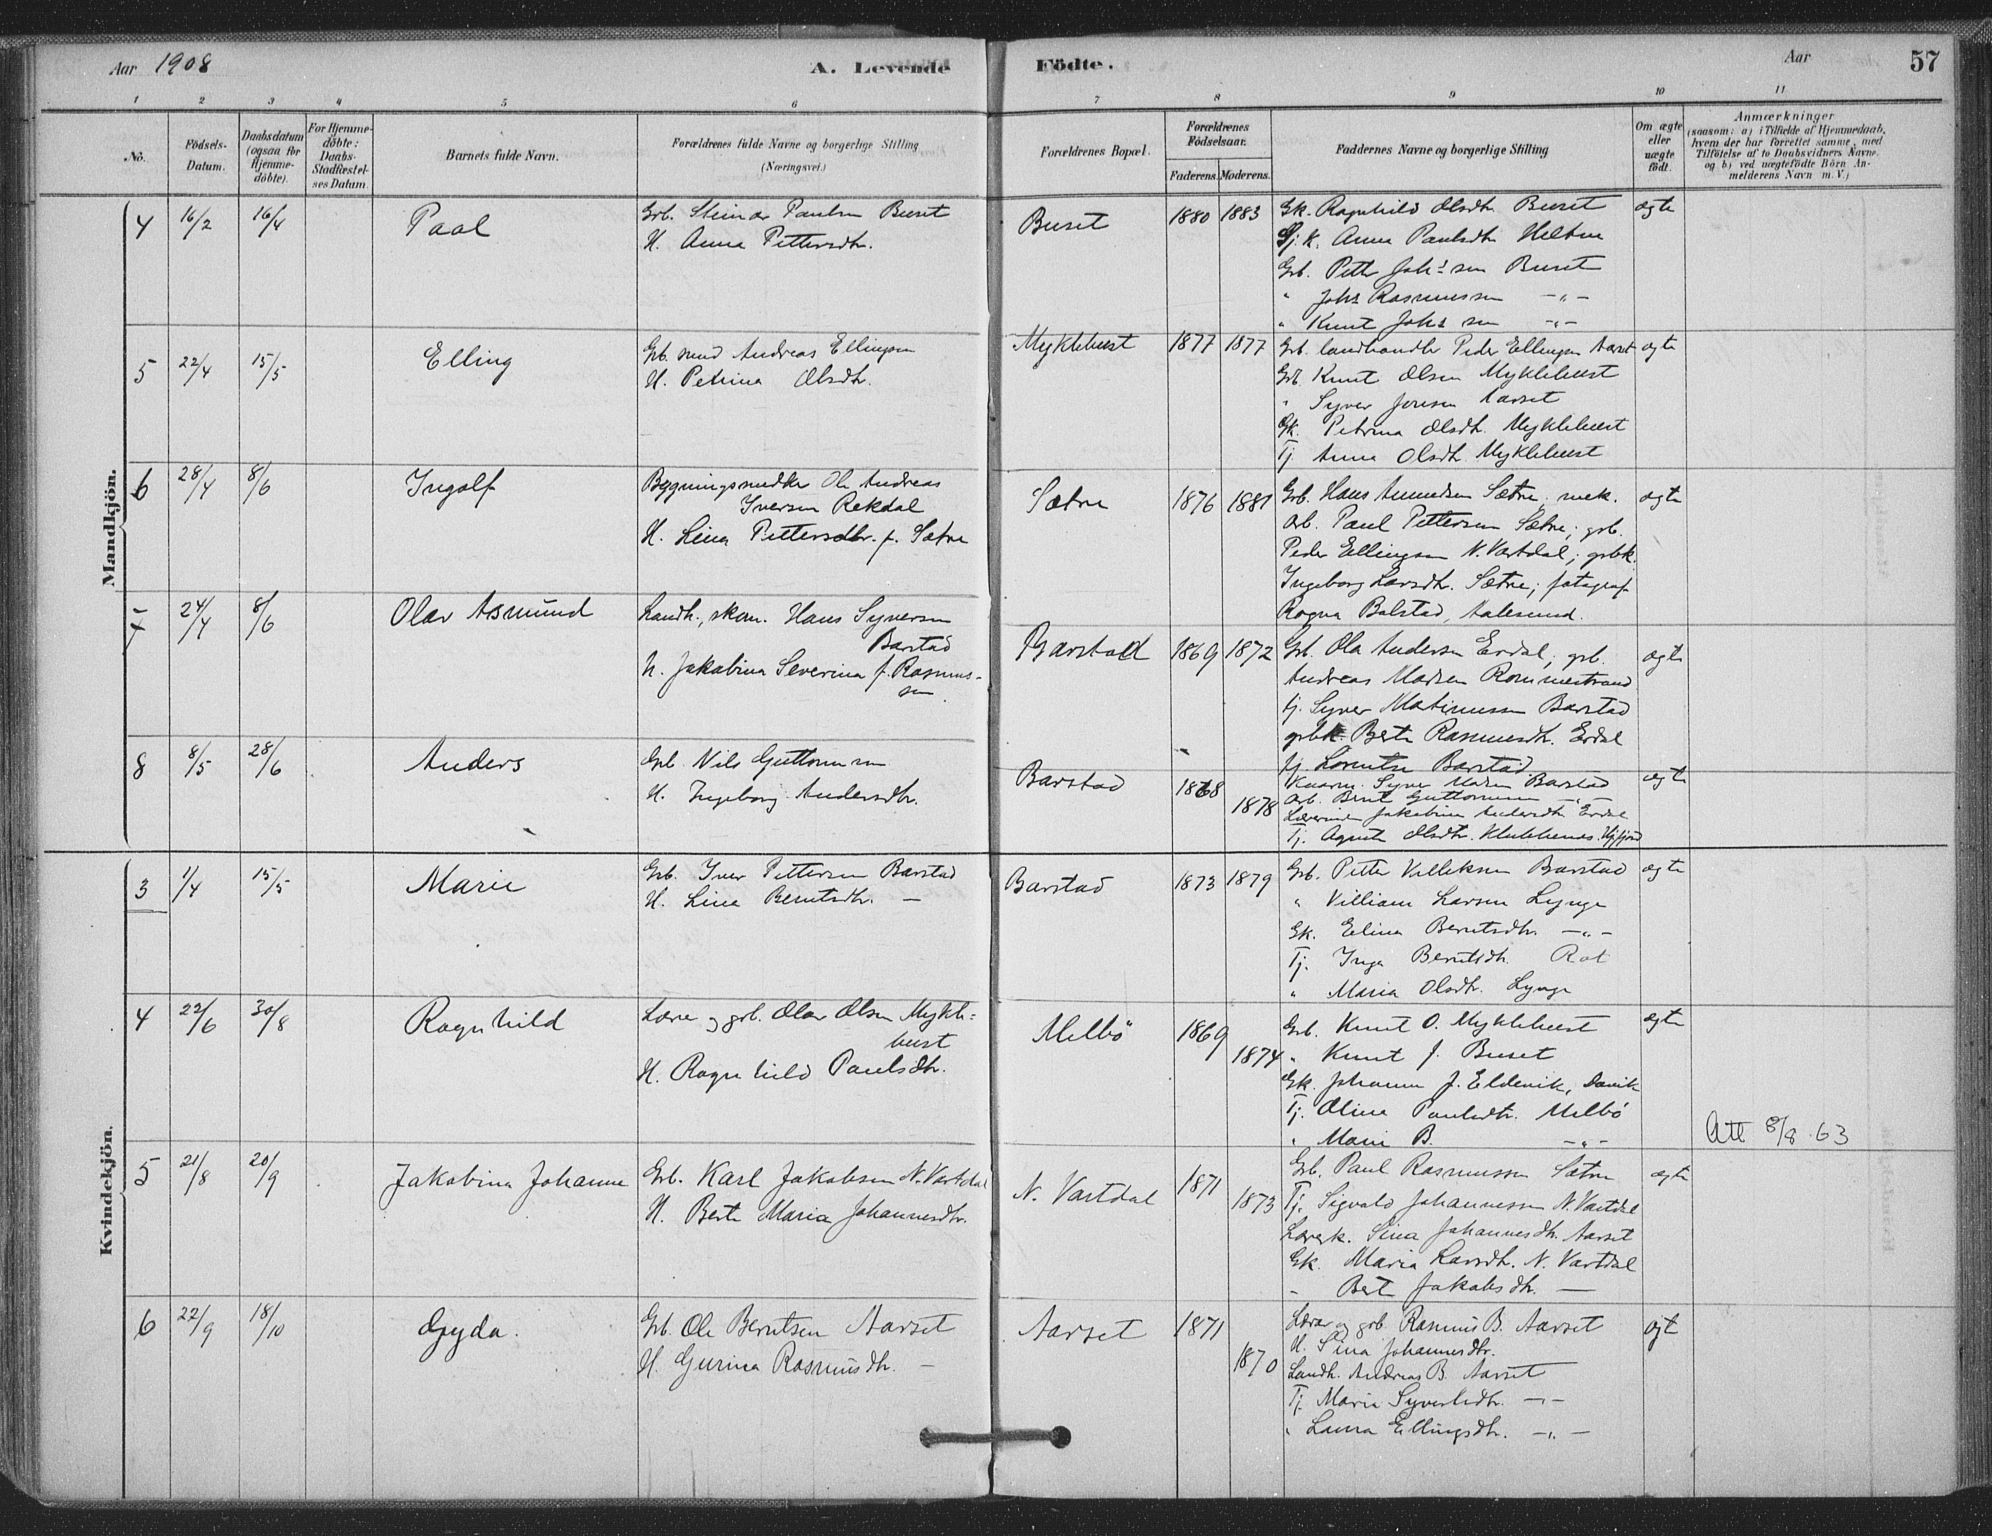 Aar 1908
A. Levende Födte.
Aar
57
1 2 3 4 5 6 7 8 9 10 11
No.
Födsels-Datum.
Daabsdatum (ogsaa for Hjemme-döbte).
For Hjemme-döbte: Daabs-Stadfæstel-ses Datum.
Barnets fulde Navn.
Forældrenes fulde Navne og borgerlige Stilling (Næringsvei.)
Forældrenes Bopæl.
Forældrenes Födselsaar.
Faderens. Moderens.
Faddernes Navne og borgerlige Stilling
Om ægte eller uægte født.
Anmærkninger
(saasom: a) i Tilfælde af Hjemmedaab, hvem der har forrettet samme, med Tilföielse af to Daabsvidners Navne, og b) ved uægtefödte Börn An-melderens Navn m. V.)
Mandkjön.
4 16/2 16/4 Paal
Grb. Steinar Paulsen Buset
H. Anna Pettersdtr.
Buset 1880 1883
Gk. Ragnhild Olsdtr Buset
Anna Paulsdtr
Grb. Petter Johs sen Buset
" Johs Rasmussen -"-
" Knut Johs sen -"-
ægte
5 22/4 15/5 Elling
Grb. Andreas Ellingsen
H. Petrina Olsdtr.
Myklebust 1877 1877
Grb. landhandler Peder Ellingsen Aarset
Grb Knut Olsen Myklebust
" Syver Jonsen Aarset
Gk. Petrina Olsdtr. Myklebust
Tj. Anna Olsdtr. Myklebust
ægte
6 28/4 8/6 Ingolf
Bygningssnedker Ole Andreas
Iversen Rekdal
H. Lina Pettersdtr. f. Sætre
Sætre 1876 1881
Grb. Hans Amundsen Sætre; mek.
arb. Paul Pettersen Sætre; grb.
Peder Ellingsen N. Vartdal; grbk.
Ingeborg Larsdtr. Sætre; fotograf
Ragna Bolstad, Aalesund.
ægte
7 24/4 8/6 Olav Asmund
Landh., skom. Hans Syversen
Barstad
H. Jakobina Severina f. Rasmus-
sen
Barstad 1869 1872
Grb. Ola Andersen Erdal; grb.
Andreas Madsen Rommestrand
tj. Syver Martinussen Barstad
grbk. Berte Rasmusdtr. Erdal
tj. Lorentse Barstad
ægte
8 8/5 28/6 Anders
Grb. Nils Guttormsen
H. Ingeborg Andersdtr.
Barstad 1868 1878
Syver Madsen Barstad
arb. Bernt Guttormsen -"-
Lærerinde Jakobina Andersdtr. Erdal
Tj. Agnete Olsdtr.
ægte
Kvindekjön.
3 1/4 15/5 Marie
Grb. Iver Pettersen Barstad
H. Lina Berntsdtr. -
Barstad 1873 1879
Grb. Petter Barstad
" Villiam Larsen Lynge
Gk. Elina Berntsdtr. -"-
Tj. Inga Berntsdtr.
" Maria Olsdtr. Lynge
ægte
4 22/6 30/8 Ragnhild
Lærer og grb. Olav Olsen Mykle-
bust
H. Ragnhild Paulsdtr.
Melbö 1869 1874
Grb. Knut O. Myklebust
" Knut J. Buset
Gk. Johanna J. Eldevik, Davik
Tj. Oline Paulsdtr. Melbö
" Marie B. -"-
ægte
Att 8/8 63
5 21/8 20/9 Jakobina Johanne
Grb. Karl Jakobsen N. Vartdal
H. Berte Maria Johannesdtr.
N. Vartdal 1871 1873
Grb. Paul Rasmussen Sætre
Tj. Sigvald Johannessen N. Vartdal
Lærerk. Sina Johannesdtr. Aarset
Gk. Maria Larsdtr. N. Vartdal
- Berte Jakobsdtr. -
ægte
6 22/9 18/10 Gyda.
Grb. Ole Berntsen Aarset
H. Gurina Rasmusdtr. -
Aarset 1871 1870
Lærer og grb. Rasmus B. Aarset
H. Sina Johannesdtr.
Landh. Andreas B. Aarset
Tj. Marie Syvertsdtr. -"-
" Laura Ellingsdtr. -"-
ægt